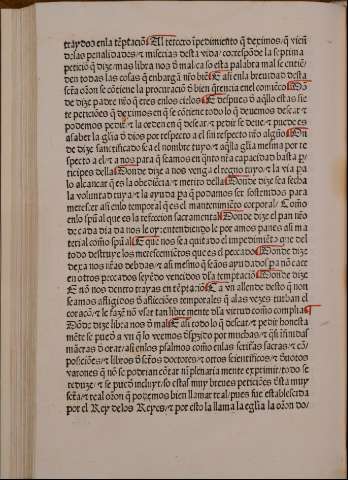 traydos en la tẽptaciõ Al tercero ĩpedimiẽto q̃ deximos/ q̃ viẽẽ
delas penalidades/ ⁊ miserias desta vida/ correspõde la septima
petició q̃ dize/mas libra nos d̃ mal ca so esta palabra mal se entiẽ
den todas las cosas q̃ enbargã nr̃o biẽ E assi en la breuidad desta
scr̃a or̃on se cõtiene la procuraciõ d̃ biẽ
de dize padre nr̃o q̃ eres en los cielos E despues d̃ aq̃llo estas sie
te peticiões q̃ deximos en q̃ se cõtiene todo lo q̃ deuemos dessear ⁊
podemos pedir/ ⁊ la orden en q̃ dessear ⁊ pedir se deue/
saber la gl̃ia d̃ dios por respecto a el sin respecto nr̃o algũo
de dize sanctificado sea el nombre tuyo/ ⁊ aq̃lla gl̃ia mesma por re
specto a el/ ⁊ a nos para q̃ seamos en q̃nto nr̃a capacidad basta p̱
ticipes della Donde dize a nos venga el regno tuyo/ ⁊ la via pa
lo alcançar q̃ es la obediẽcia/ ⁊ merito della Donde dize sea fecha
la voluntad tuya/ ⁊ la ayuda pa q̃ podamos ser sostenidos para
merescer assi enlo temporal q̃ es el mantenimiẽto corporal/ Como
enlo spũal que es la refeccion sacramental Donde dize el pan nr̃o
de cada dia da nos le oy: entendiendo le por amos panes assi ma
terial como spũal E que nos sea quitado el impedimẽto que del
todo destruye los merescimiẽtos que es el peccado Donde dize
dexa nos nr̃as debdas/ ⁊ assi mesmo q̃ seamos ayudados pa nõ caer
en otros peccados seyẽdo vencidos dla temptaciõ Donde dize
E nõ nos dexes traydos en tẽptaciõ E a vn allende desto q̃ non
seamos afligidos d̃ aflicciões temporales q̃ alas vezes turban el
coraçõ/ ⁊ le fazẽ nõ vsar tan libre mente dla virtud como complia
Dõde dize libra nos d̃ mal E assi todo lo q̃ dessear/ ⁊ pedir honesta
mẽte se puede a vn q̃ lo veemos d̃spzido por muchas/ ⁊ q̃si ĩfinidas
maneras d̃ orar/ assi enlos psalmos como enlas scr̃iras sacras/ ⁊ cõ
posiciões/ ⁊ libros d̃ sctõs doctores/ ⁊ otros scientificos/ ⁊ deuotos
varones q̃ nõ se podrian cõtar ni plenaria mente exprimir/ todo se
reduze/ ⁊ se puede incluyr so estas muy breues peticiões desta muy
scr̃a/ ⁊ real or̃on q̃ podemos bien llamar real/ pues fue establescida
por el Rey delos Reyes/ ⁊ por esto la llama la egl̃ia la or̃on do/